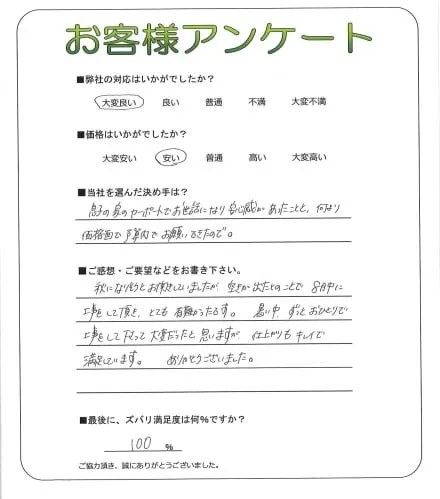 お客様アンケート
■弊社の対応はいかがでしたか?
大変良い 良い 普通 不満 大変不満
■価格はいかがでしたか?
大変安い 安い 普通 高い 大変高い
■当社を選んだ決め手は?
息子の家のカーポートでお世話になり安心感があったことと、何より
価格面で予算内でお願いできたので。
■ご感想・ご要望などをお書き下さい。
秋になり涼うとお伺していましたが、空きが出たとのことで 8月中に
工事をして頂き、とても有難かったです。 暑い中、ずっとおひとりで
工事をして下さって大変だったと思いますが、仕上がりもキレイで
満足しています。 ありがとうございました。
■最後に、ズバリ満足度は何%ですか?
100 %
ご協力頂き、誠にありがとうございました。